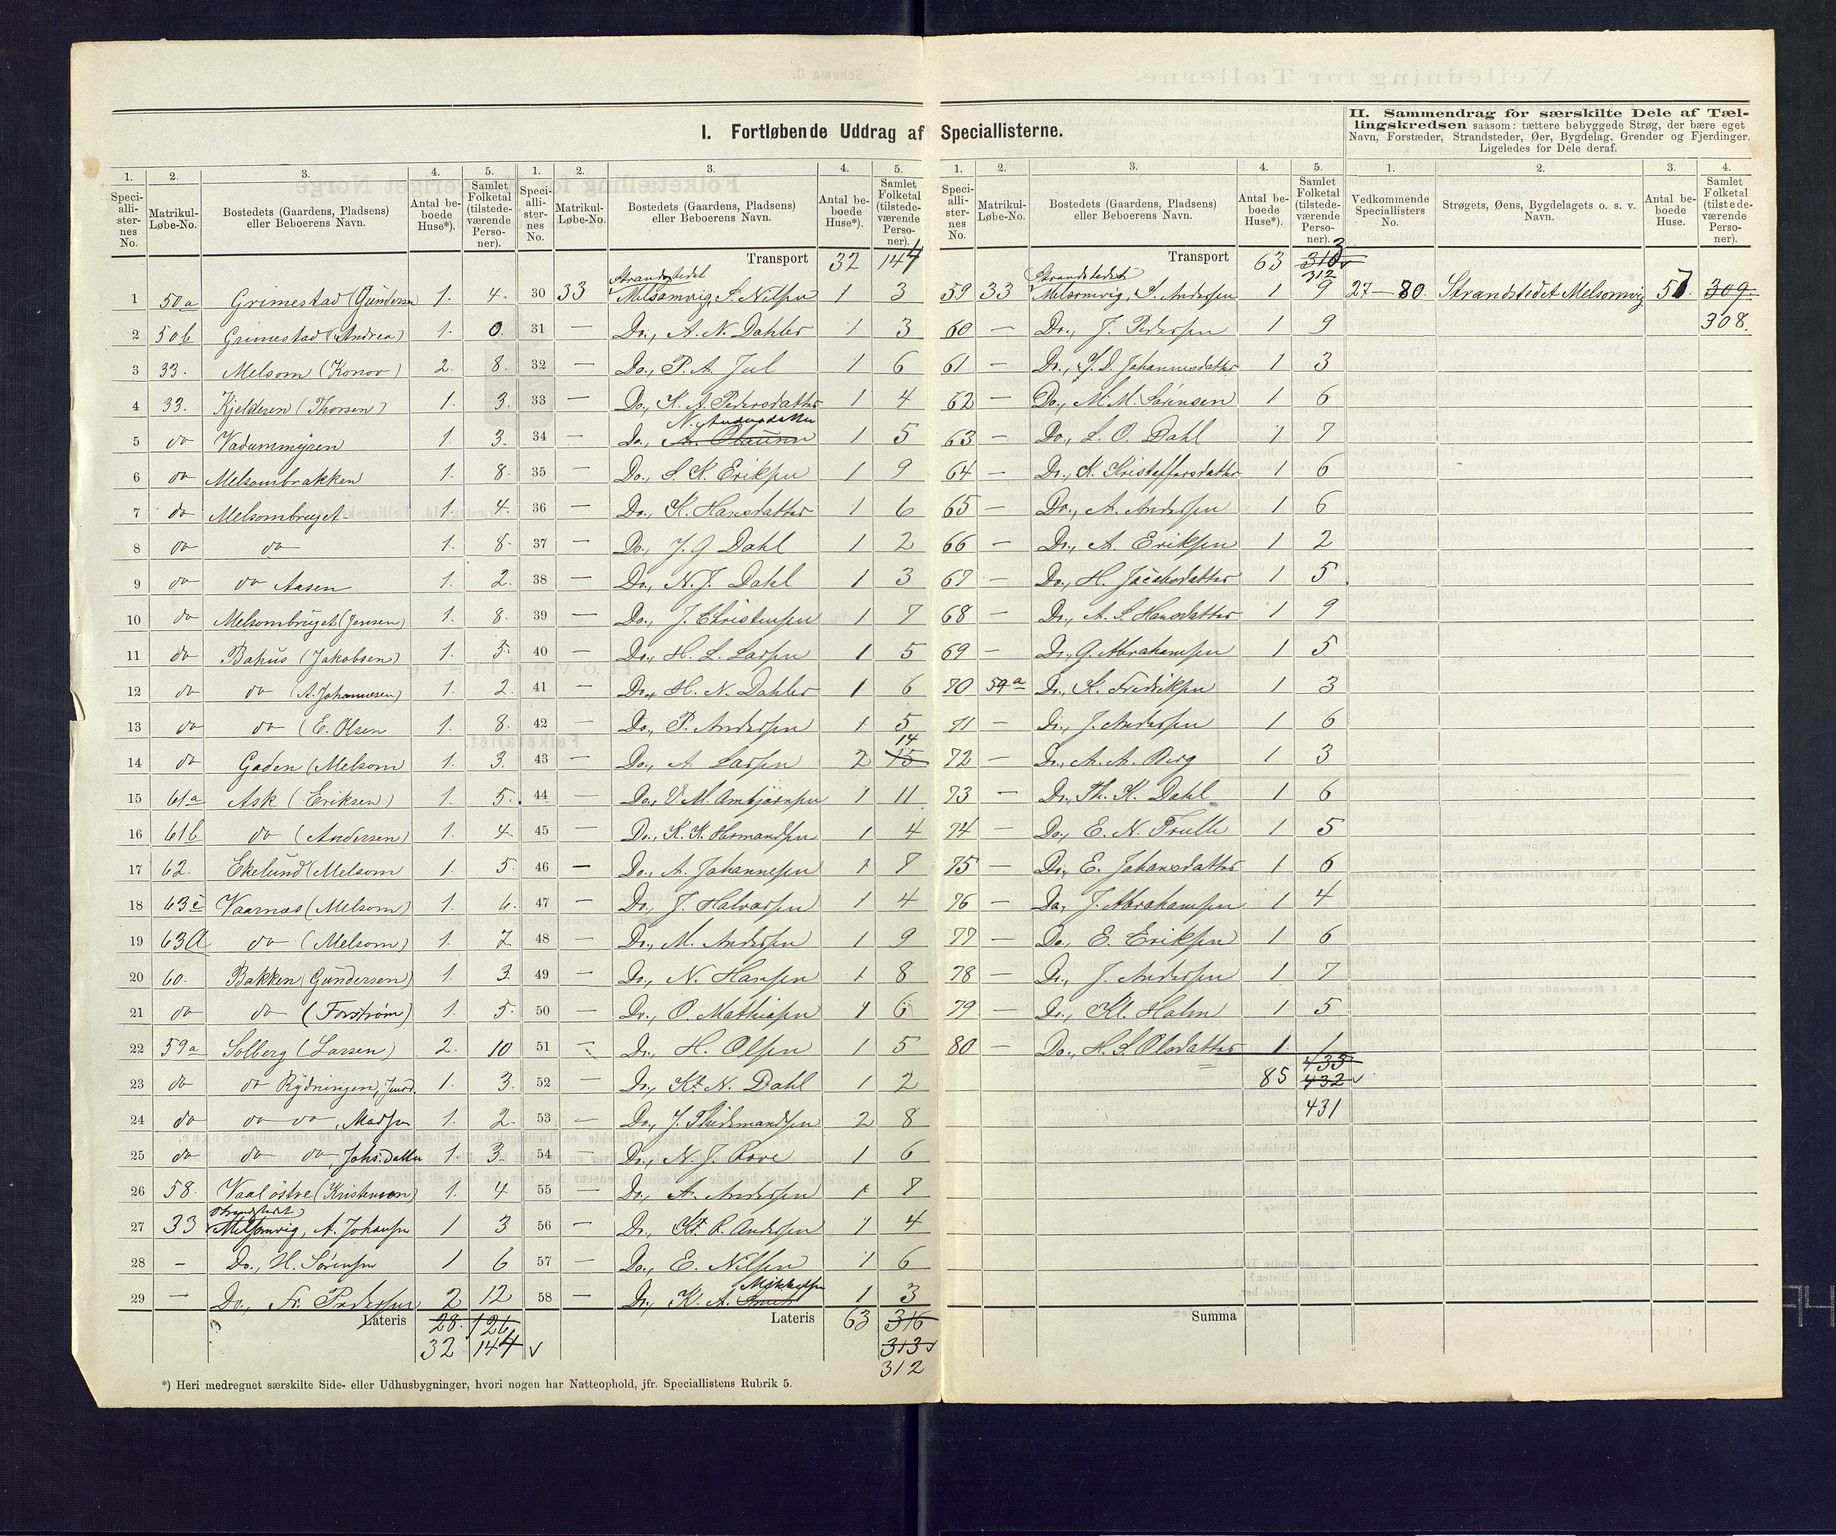 I. Fortløbende Uddrag af Speciallisterne.
II. Sammendrag for særskilte Dele af Tæl-
lingskredsen saasom: tættere bebyggede Strøg, der bære eget
Navn, Forstæder, Strandsteder, Øer, Bygdelag, Grender og Fjerdinger.
Ligeledes for Dele deraf.
1. 2. 3. 4. 5.
Speciallisternes No. Matrikul-Løbe-No. Bostedets (Gaardens, Pladsens) eller Beboerens Navn. Antal beboede Huse*). Samlet Folketal (tilstedeværende Personer).
1 50a Grimestad (Gundersen 1. 4.
2 50b Grimestad (Andrea) 1. 0.
3 33. Melsom (Konov) 2. 8.
4 33. Kjelderen (Thorsen) 1. 3.
5 do Vadummyren 1. 3.
6 do Melsombrakken 1. 8.
7 do Melsombruget 1. 4.
8 do do 1. 8.
9 do do Aasen 1. 2.
10 do Melsombruget (Jensen) 1. 8.
11 do Bahus (Jakobsen) 1. 5.
12 do do (A. Johannesen) 1. 2.
13 do do (E. Olsen 1. 8.
14 do Gaden (Melsom 1. 3.
15 61a Ask (Eriksen) 1. 5.
16 61b do (Andersen) 1. 4.
17 62. Ekelund (Melsom 1. 5.
18 63c Vaarnas (Melsom) 1. 6.
19 63a do (Melsom) 1. 7
20 60. Bakken (Gundersen) 1. 3.
21 do do (Forstrøm) 1. 5.
22 59a Solberg (Larsen) 2. 10
23 do do Rydningen, 1. 3.
24 do do do, Madsen 1. 2.
25 do do do, Johs.datter 1. 3.
26 58. Vaal østre (Kristensen) 1. 4
27 33 Strandstedet Melsomvig, A. Johansen 1 3
28 - Do., H. Sørensen 1 6
29 - Do, Fr. Pedersen 2 12
Lateris 28. 126
32 144
1. 2. 3. 4. 5.
Speciallisternes No. Matrikul-Løbe-No. Bostedets (Gaardens, Pladsens) eller Beboerens Navn. Antal beboede Huse*). Samlet Folketal (tilstedeværende Personer).
Transport 32 144
30 33 Strandstedet Melsomvig, S. Nilsen 1 3
31 - Do., A. N. Dahler 1 3
32 - Do., P. A. Jul 1 6
33 - Do., K. A. Pedersdatter 1 4
34 - Do., N. Andersdatter 1 5
35 - Do., S. K. Eriksen 1 9
36 - Do., K. Hansdatter 1 6
37 - Do, J. G Dahl 1 2
38 - Do., N. J. Dahl 1 3
39 - Do., J. Christensen 1 7
40 - Do., H. L. Larsen 1 5
41 - Do., H. N. Dahler 1 6
42 - Do., P. Andersen 1 5
43 - Do., A Larsen 2 15 14
44 - Do., M. Ambjørnsen 1 11
45 - Do., K. K. Hermandsen 1 4
46 - Do., A. Johannesen 1 7
47 - Do., J. Halvorsen 1 4
48 - Do., M. Andersen 1 9
49 - Do., N. Hansen 1 8
50 - Do., O. Mathisen 1 6
51 - Do., H. Olsen 1 5
52 - Do., Kr. N. Dahl 1 2
53 - Do., J. Thidemandsen 2 8
54 - Do., N. J. Rove 1 6
55 - Do., A. Andersen 1 7
56 - Do., Kr. R. Andersen 1 4
57 - Do., E. Nilsen 1 6
58 - Do., K. A. Mikkelsen 1 3
Lateris 63 316
313
312
1. 2. 3. 4. 5.
Speciallisternes No. Matrikul-Løbe-No. Bostedets (Gaardens, Pladsens) eller Beboerens Navn. Antal beboede Huse*). Samlet Folketal (tilstedeværende Personer).
Transport 63 312
59 33 Strandstedet Melsomvig, S. Andersen 1 9
60 - Do., J. Pedersen 1 9
61 - Do., S. D. Johannesdatter 1 3
62 - Do., M. M. Sørensen 1 6
63 - Do., L. O. Dahl 1 7
64 - Do., K. Kristoffersdatter 1 6
65 - Do., A. Andersen 1 6
66 - Do., A. Eriksen 1 2
67 - Do., H. Jacobsdatter 1 5
68 - Do., A. S. Hansdatter 1 9
69 - Do., G. Abrahamsen 1 5
70 59a Do., K. Fredriksen 1 3
71 - Do., J. Andersen 1 6
72 - Do., A. A. Berg 1 3
73 - Do., Th. K. Dahl 1 6
74 - Do., E. N. Trulle 1 5
75 - Do., E. Johansdatter 1 6
76 - Do., J. Abrahamsen 1 4
77 - Do., E. Eriksen 1 6
78 - Do., J. Andersen 1 7
79 - Do., Kl. Holm 1 5
80 - Do., H. S. Olsdatter 1 1
433
85 432
431
Summa
1. 2. 3. 4.
Vedkommende Speciallisters No. Strøgets, Øens, Bygdelagets o. s. v. Navn. Antal beboede Huse. Samlet Folketal (tilstedeværende Personer).
27-80. Strandstedet Melsomvig 57. 309.
308.
*) Heri medregnet særskilte Side- eller Udhusbygninger, hvori nogen har Natteophold, jfr. Speciallistens Rubrik 5.